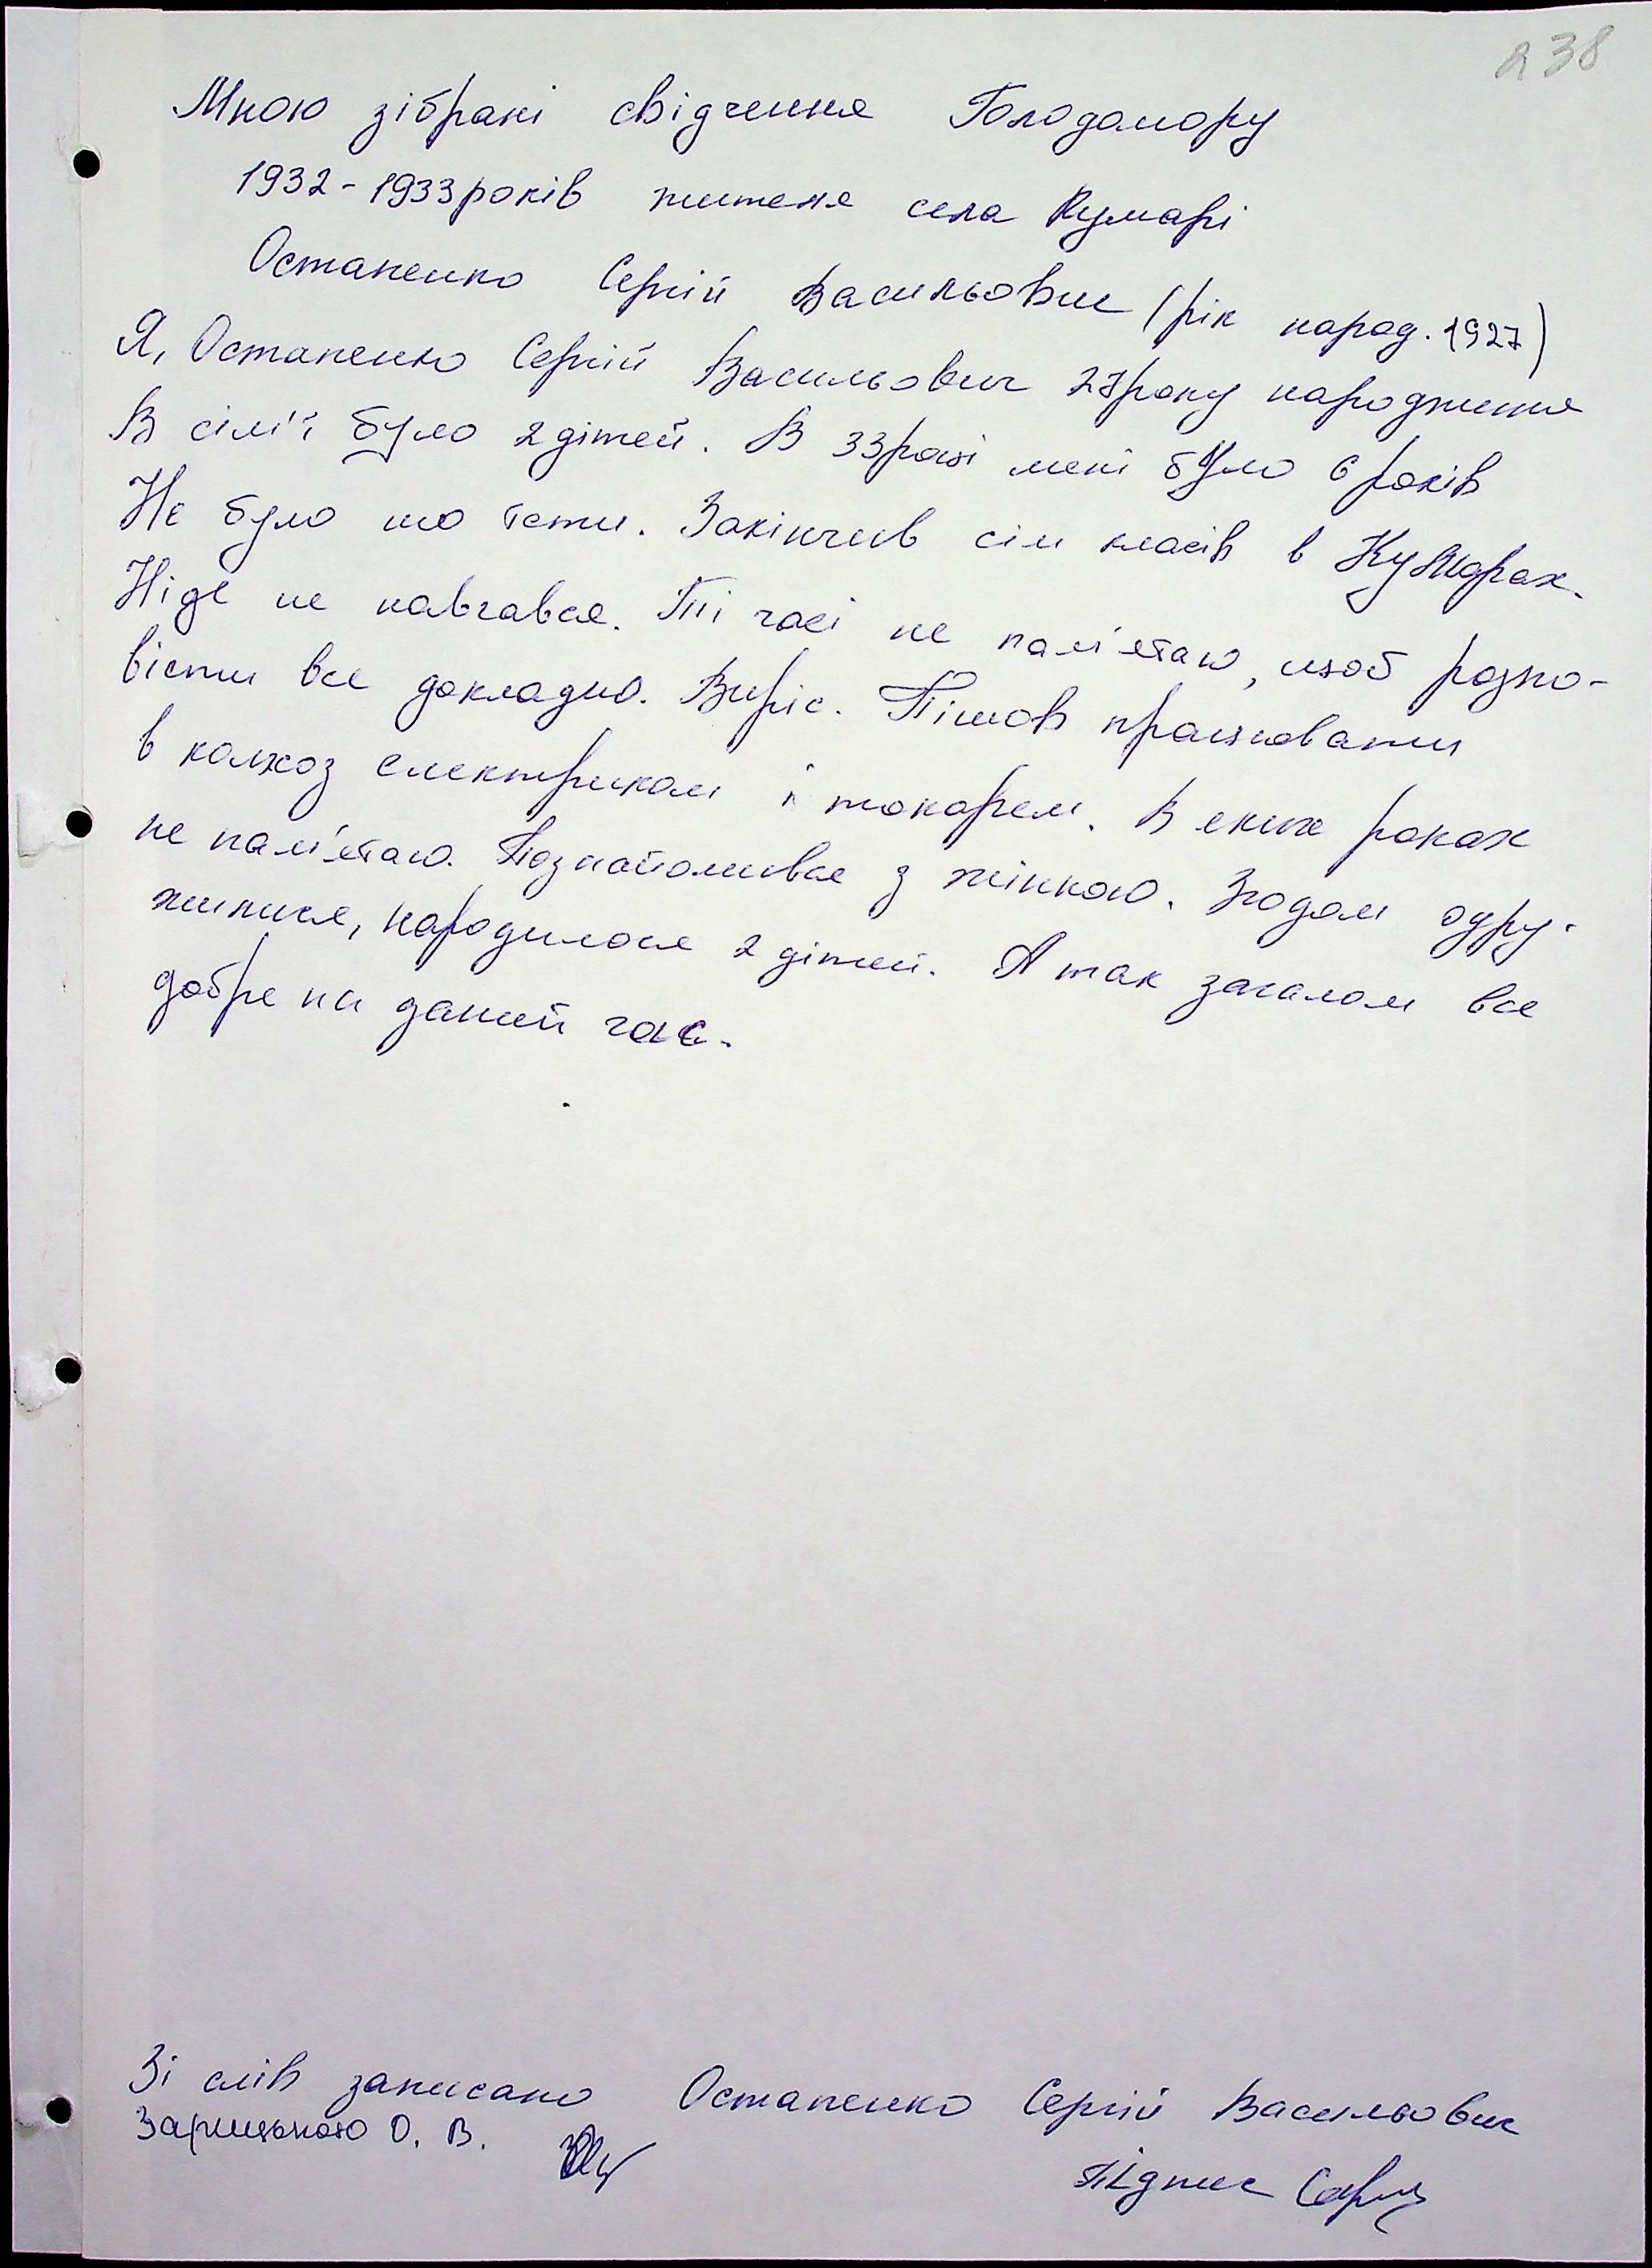 238
Мною зібрані свідчення Голодомору
1932-1933 років жителя села Кумарі
Остапенко Сергій Васильович (рік народ. 1927)
Я, Остапенко Сергій Васильович 27 року народження
В сім'ї було 2 дітей. В 33 році мені було 6 років
Не було що їсти. Закінчив сім класів в Кумарах.
Ніде не навчався. Ті часі не пам'ятаю, щоб розпо-
вісти все докладно. Виріс. Пішов працювати
в колхоз електриком і токарем. В яких роках
не пам'ятаю. Познайомився з жінкою. Згодом одру-
жилися, народилося 2 дітей. А так загалом все
добре на даний час.
Зі слів записано Остапенко Сергій Васильович
Зарицькою О. В.
Підпис